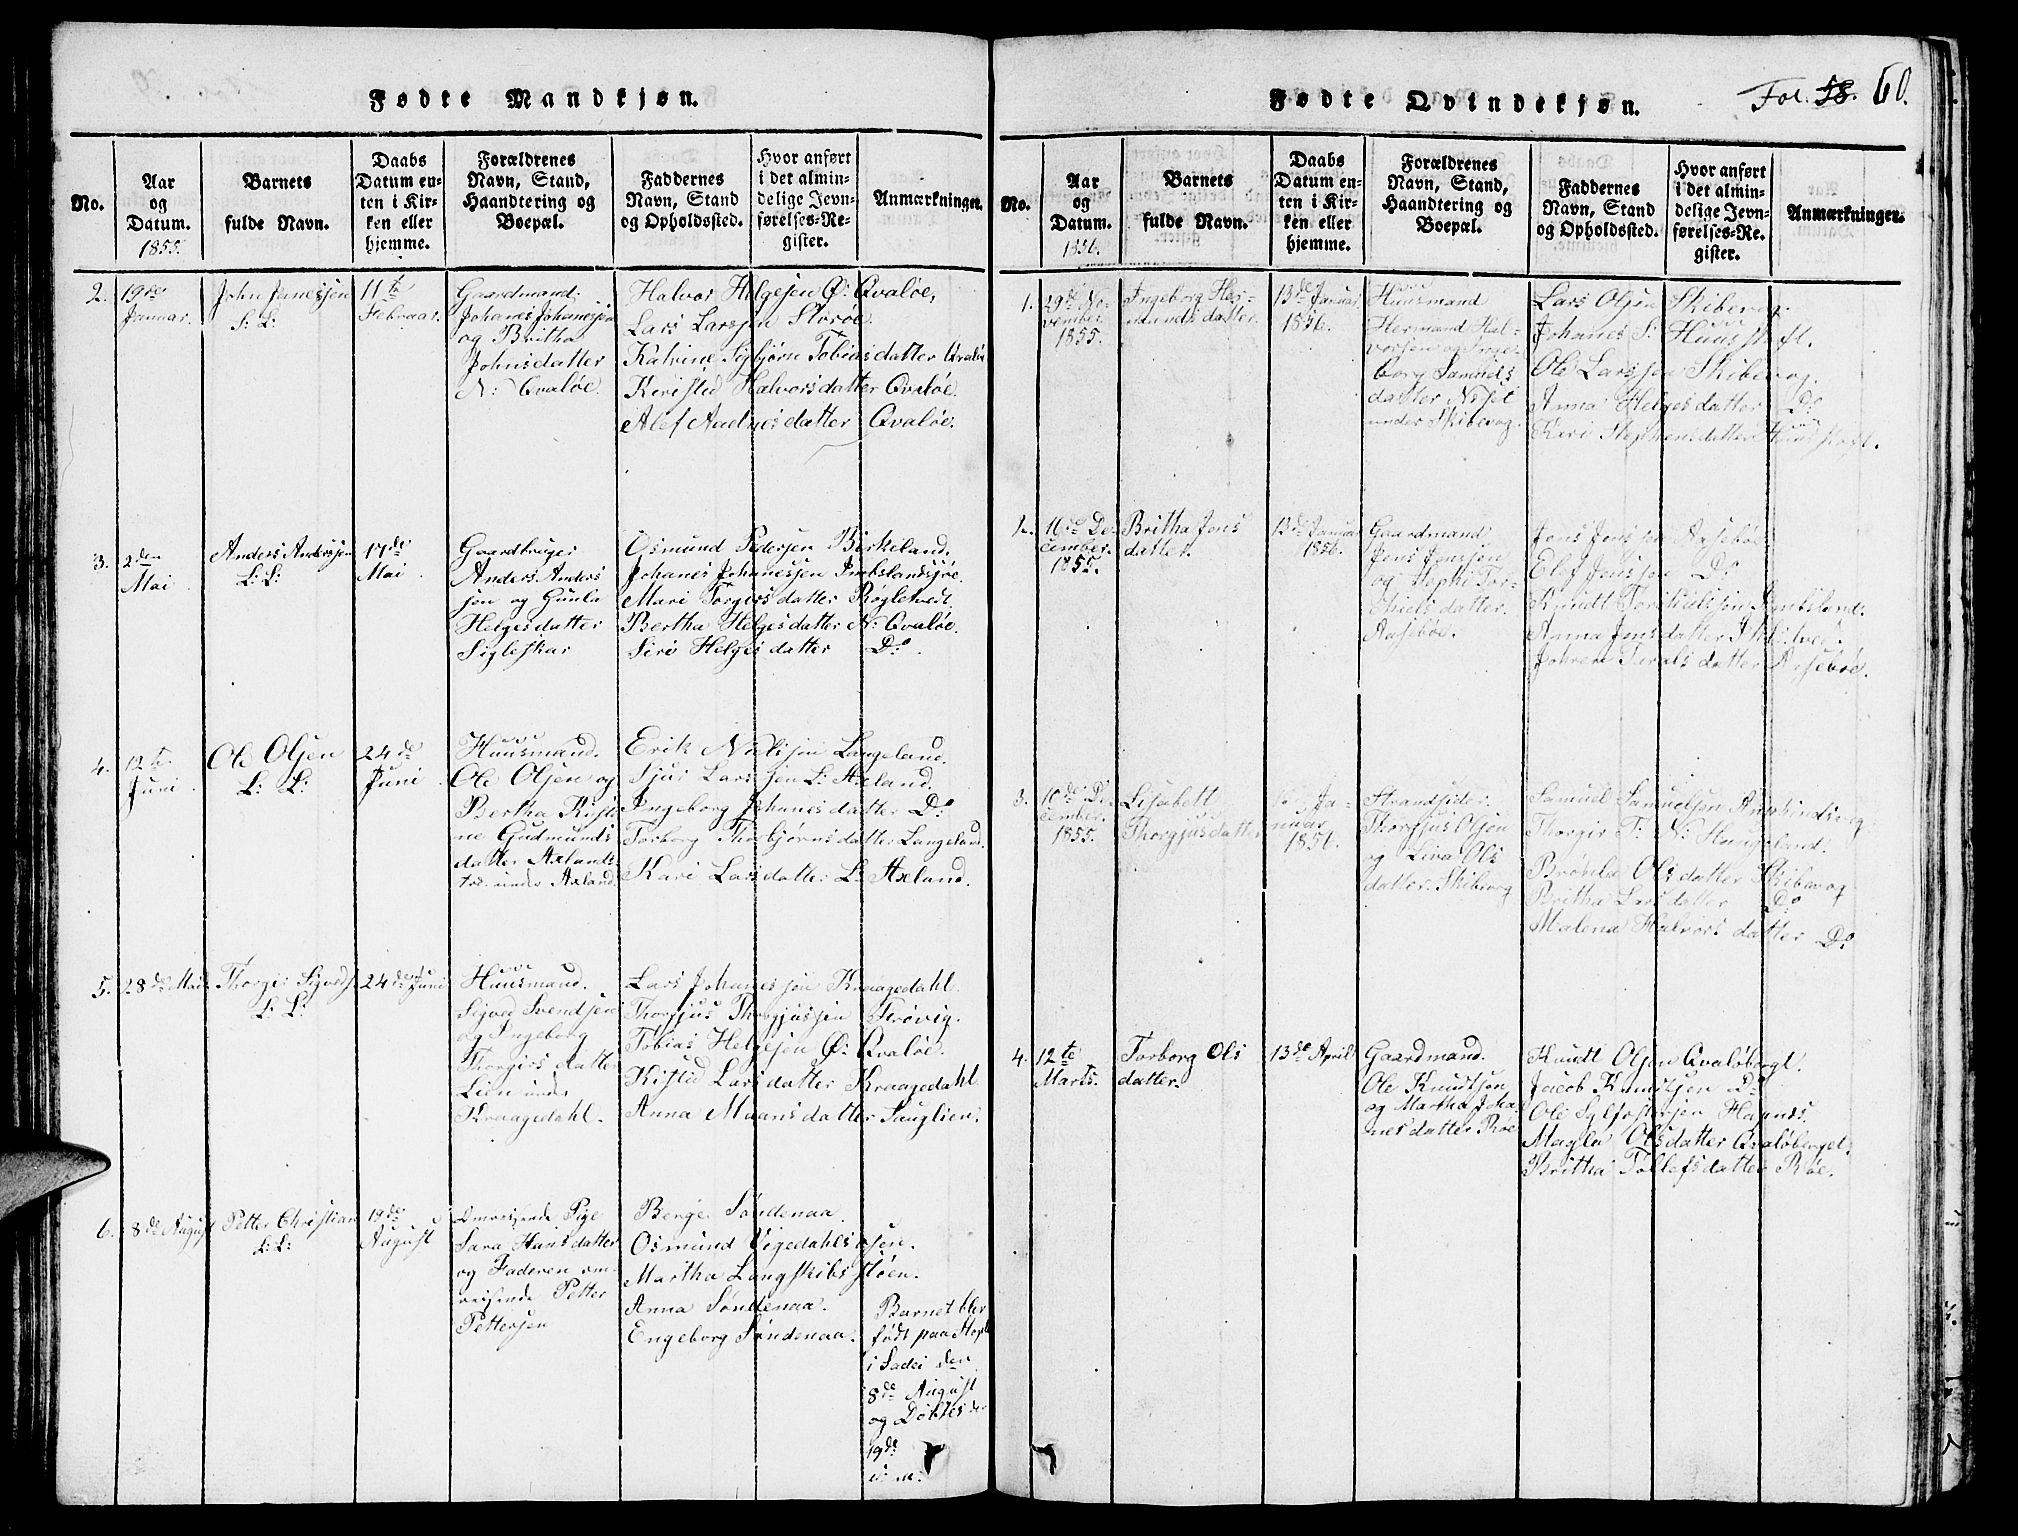 Fødte Mandkjøn.
No.
Aar
og
Datum.
1855.
Barnets
fulde Navn.
Daabs
Datum en-
ten i Kir-
ken eller
hjemme.
Forældrenes
Navn, Stand,
Haandtering og
Boepæl.
Faddernes
Navn, Stand
og Opholdssted.
Hvor anført
i det almin-
delige Jevn-
førelses-Re-
gister.
Anmærkninger.
2.
19de
Januar.
John Janessen
S: L:
11te
Februar.
Gaardmand:
Johanes Johanesjen
og Britha
Johnsdatter
N: Qvaløe.
Halvor Helgesen Ø: Qvaløe,
Lars Larssen Storøe.
Katrine Sigbjørn Tobiasdatter Qvaløe
Keristid Halvorsdatter Qvaløe.
Alef Audnesdatter Qvaløe.
3.
2den
Mai.
Anders Anderssen
L: L:
17de
Mai.
Gaardbruger
Anders Anders
sen og Gunla
Helgesdatter
Sigleskar
Osmund Pedersen Birkeland.
Johanes Johanessen Imbslandsjøe.
Mari Torgersdatter Røgletvedt.
Bertha Helgesdatter N: Qvaløe.
Siri Helgesdatter Do.
4.
12te
Juni
Ole Olsen
L: L:
24de
Juni.
Huusmand.
Ole Olsen og
Bertha Kisti
ne Gudmunds
datter Axlands-
træ under Axland.
Erik Nielsen Langeland.
Sjur Larssen L: Axland.
Ingeborg Johanesdatter Do
Torborg Thorbjørnsdatter Langeland.
Kari Larsdatter L: Axland.
5.
28de Mai.
Thorger Sigveds.
L: L:
24de Juni
Huusmand.
Sigved Svendsen
og Ingeborg
Thorgersdatter
Lien under
Kraagedahl.
Lars Johanessen Kraagedahl.
Thorgjus Thorgjussen Frøvig.
Tobias Helgesen Ø: Qvaløe.
Kistid Larsdatter Kraagedahl.
Anna Maansdatter Tauglien:
6.
8de August
Petter Christian
L: L:
19de
August
Omreisende Pige
Sara Hansdatter
og Faderen om-
reisende Petter
Pettersen
Berge Søndenaa.
Osmund Vigedahlsosen.
Martha Langskibsstøen.
Anna Søndenaa.
Engeborg Søndenaa.
Barnet blev
født paa
i Sadei den
8de August
og Døbtes den
19de
Fødte Qvindekjøn.
Fol. 58. 60.
No.
Aar
og
Datum.
1856.
Barnets
fulde Navn.
Daabs
Datum en-
ten i Kir-
ken eller
hjemme.
Forældrenes
Navn, Stand,
Haandtering og
Boepæl.
Faddernes
Navn, Stand
og Opholdssted.
Hvor anført
i det almin-
delige Jevn-
førelses-Re-
gister.
Anmærkninger.
1.
29de No-
vember.
1855.
Ingeborg Her-
mundsdatter.
13de Januar
1856.
Huusmand
Hermand Hal-
vorsen og Inge-
borg Samuels
datter Neset
under Skibevog.
Lars Olsen Skibevog.
Johanes S: Huustoft.
Ole Larssen Skibevog.
Anna Helgesdatter Do
Kari Stephensdatter Huustoft.
2.
16de De-
cember.
1855.
Britha Jons
datter.
13de Januar
1856.
Gaardmand
Jens Jenssen
og Sophi Tor-
kielsdatter.
Aasebøe.
Jens Jenssen Aasebøe
Elef Jenssen Do
Knudt Torkielssen Imbsland.
Anna Jensdatter
datter Aasebøe.
3.
10de De-
cember.
1855.
Lisabett
Thorgjusdatter
Ja-
nuar
1856.
Strandsider.
Thorgjus Olsen
og Liva Ols
datter. Skibevog
Samuel Samuelsen
Thorgir T: N: Haugeland.
Brønla Olsdatter Skibevog
Britha Larsdatter Do
Malena Halvorsdatter Do
4.
12te
Marts.
Torborg Ols
datter.
13de April
Gaardmand.
Ole Knudtsen
og Martha Joha
nesdatter Røe
Knudt Olsen Qvaløberget.
Jacob Knudtsen Do
Ole Sylfestersen Hapnes.
Magla Olsdatter Qvaløberget.
Britha Tollefsdatter Røe.